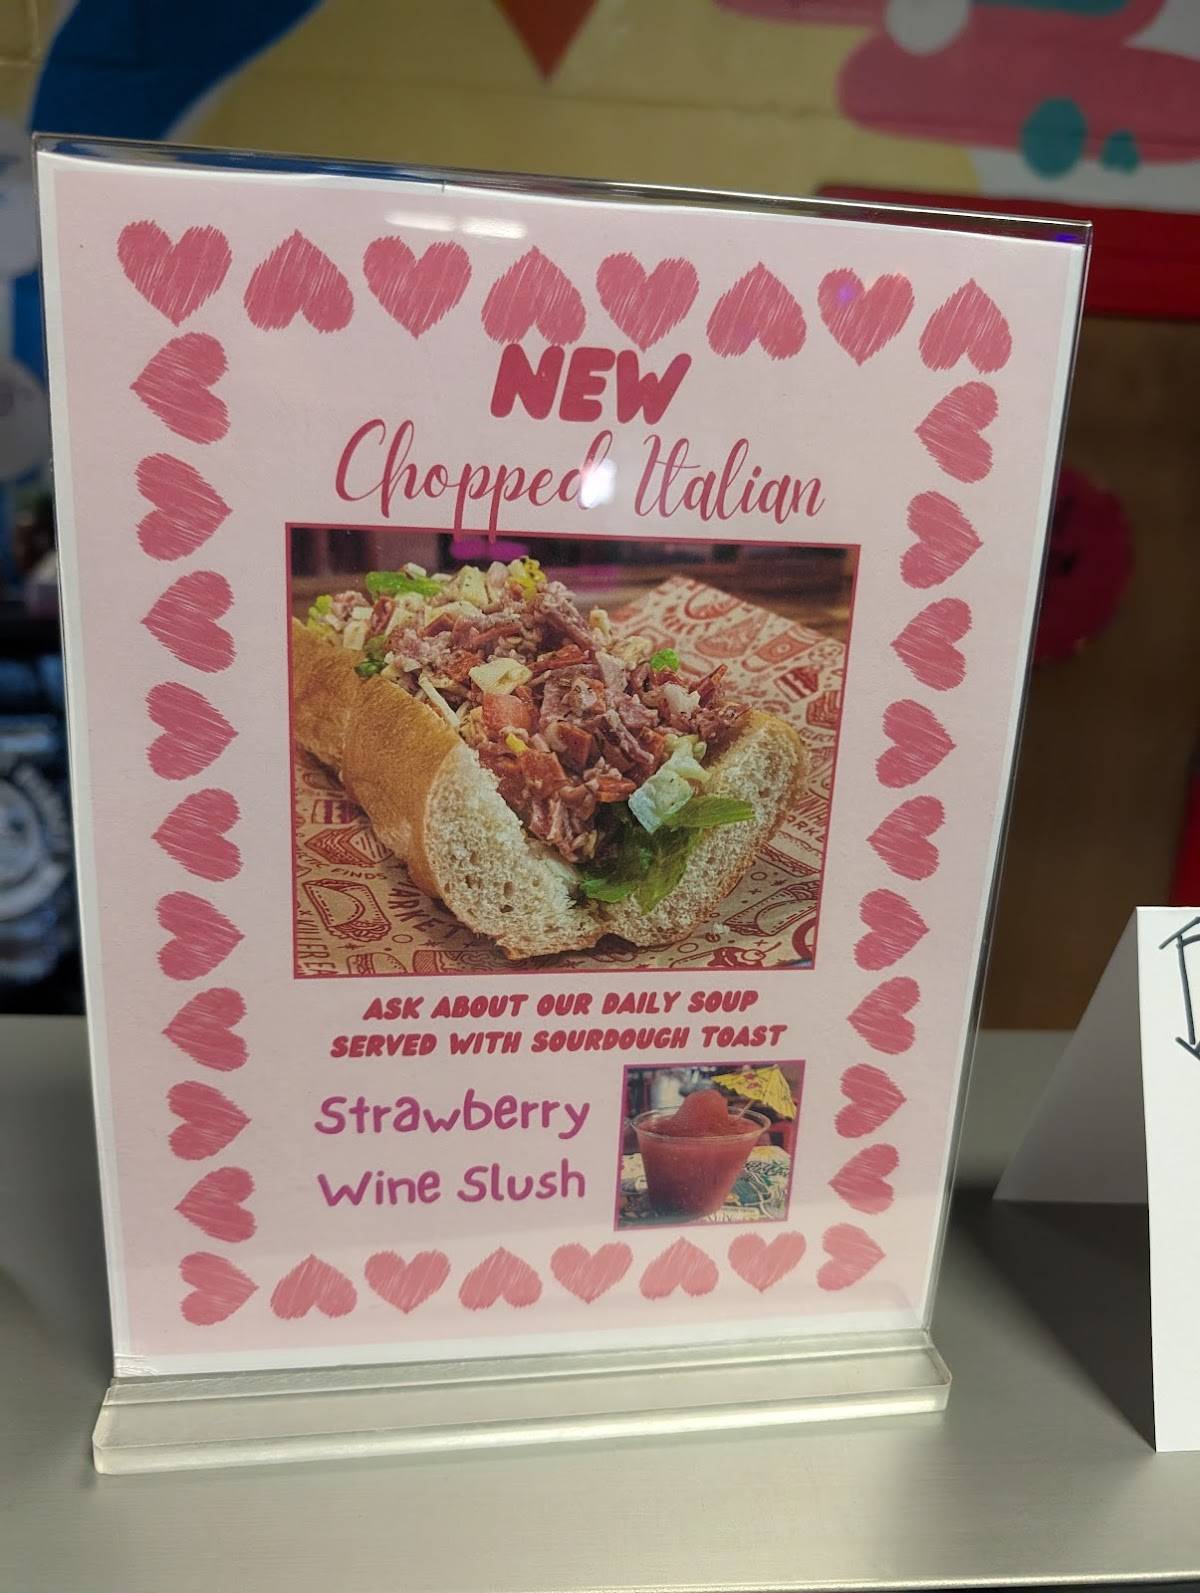 NEW
Chopped Italian
ASK ABOUT OUR DAILY SOUP
SERVED WITH SOURDOUGH TOAST
Strawberry
Wine Slush